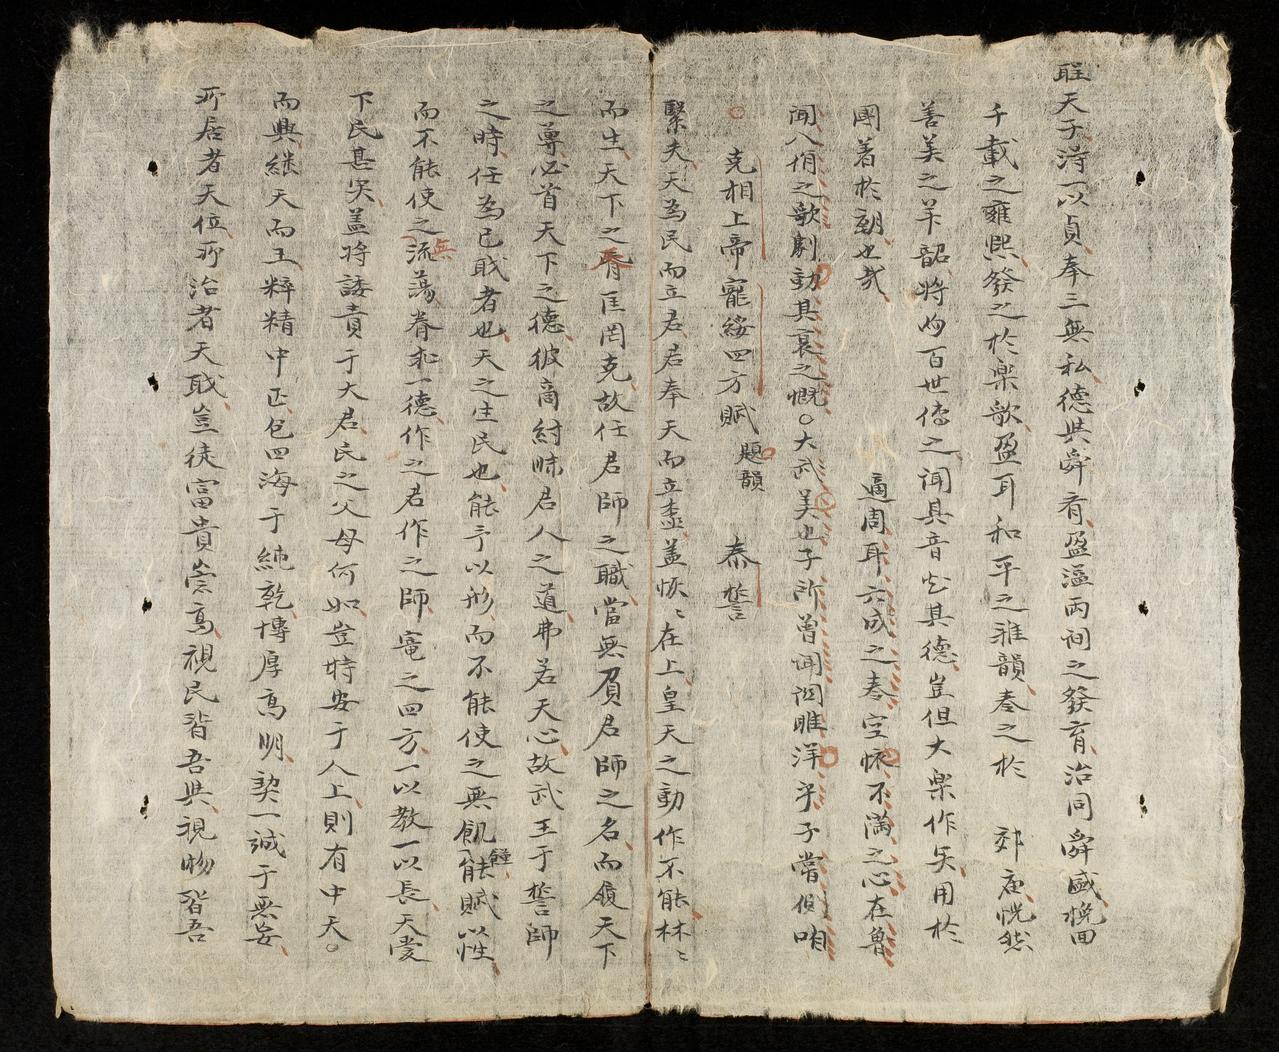 聖天子淂一以貞奉三無私德共舜有盈溫兩间之發育治同舜盛挽回
千載之雍熙發之於楽歌盈耳和平之雅韻奏之於 郊庙恍然
善美之芾韶將向百世傳之闻其音知其德豈但大楽作矣用於
團着於朝也㢤 適周耳六成之奏空懷不滿之心在魯
闻八佾之歌劇動其哀之慨○大武美也子所曾闻関雎洋乎子嘗側咱
○克相上帝寵綏四方賦 題韻 泰誓
緊夫天為民而立君君奉天而立盖恢〻在上皇天之動作不能林〻
而生天下之脊匡罔克故任君師之職當無負君師之名而履天下
之尊必首天下之德彼商紂昧君人之道弗若天心故武王于誓師
之時任為已戝者也天之生民也能予以形而不能使之無飢能賦以性
而不能使之無流蕩眷求一德作之君作之師寵之四方一以教一以長天爱
下民甚矣盖将諉責于大君民之父母何如豈特安于人上則有中天○
而興継天而王粹精中正包四海于純乾博厚高明契一誠于無妄
所居者天位所治者天戝豈徒富貴崇高視民皆吾共視物皆吾